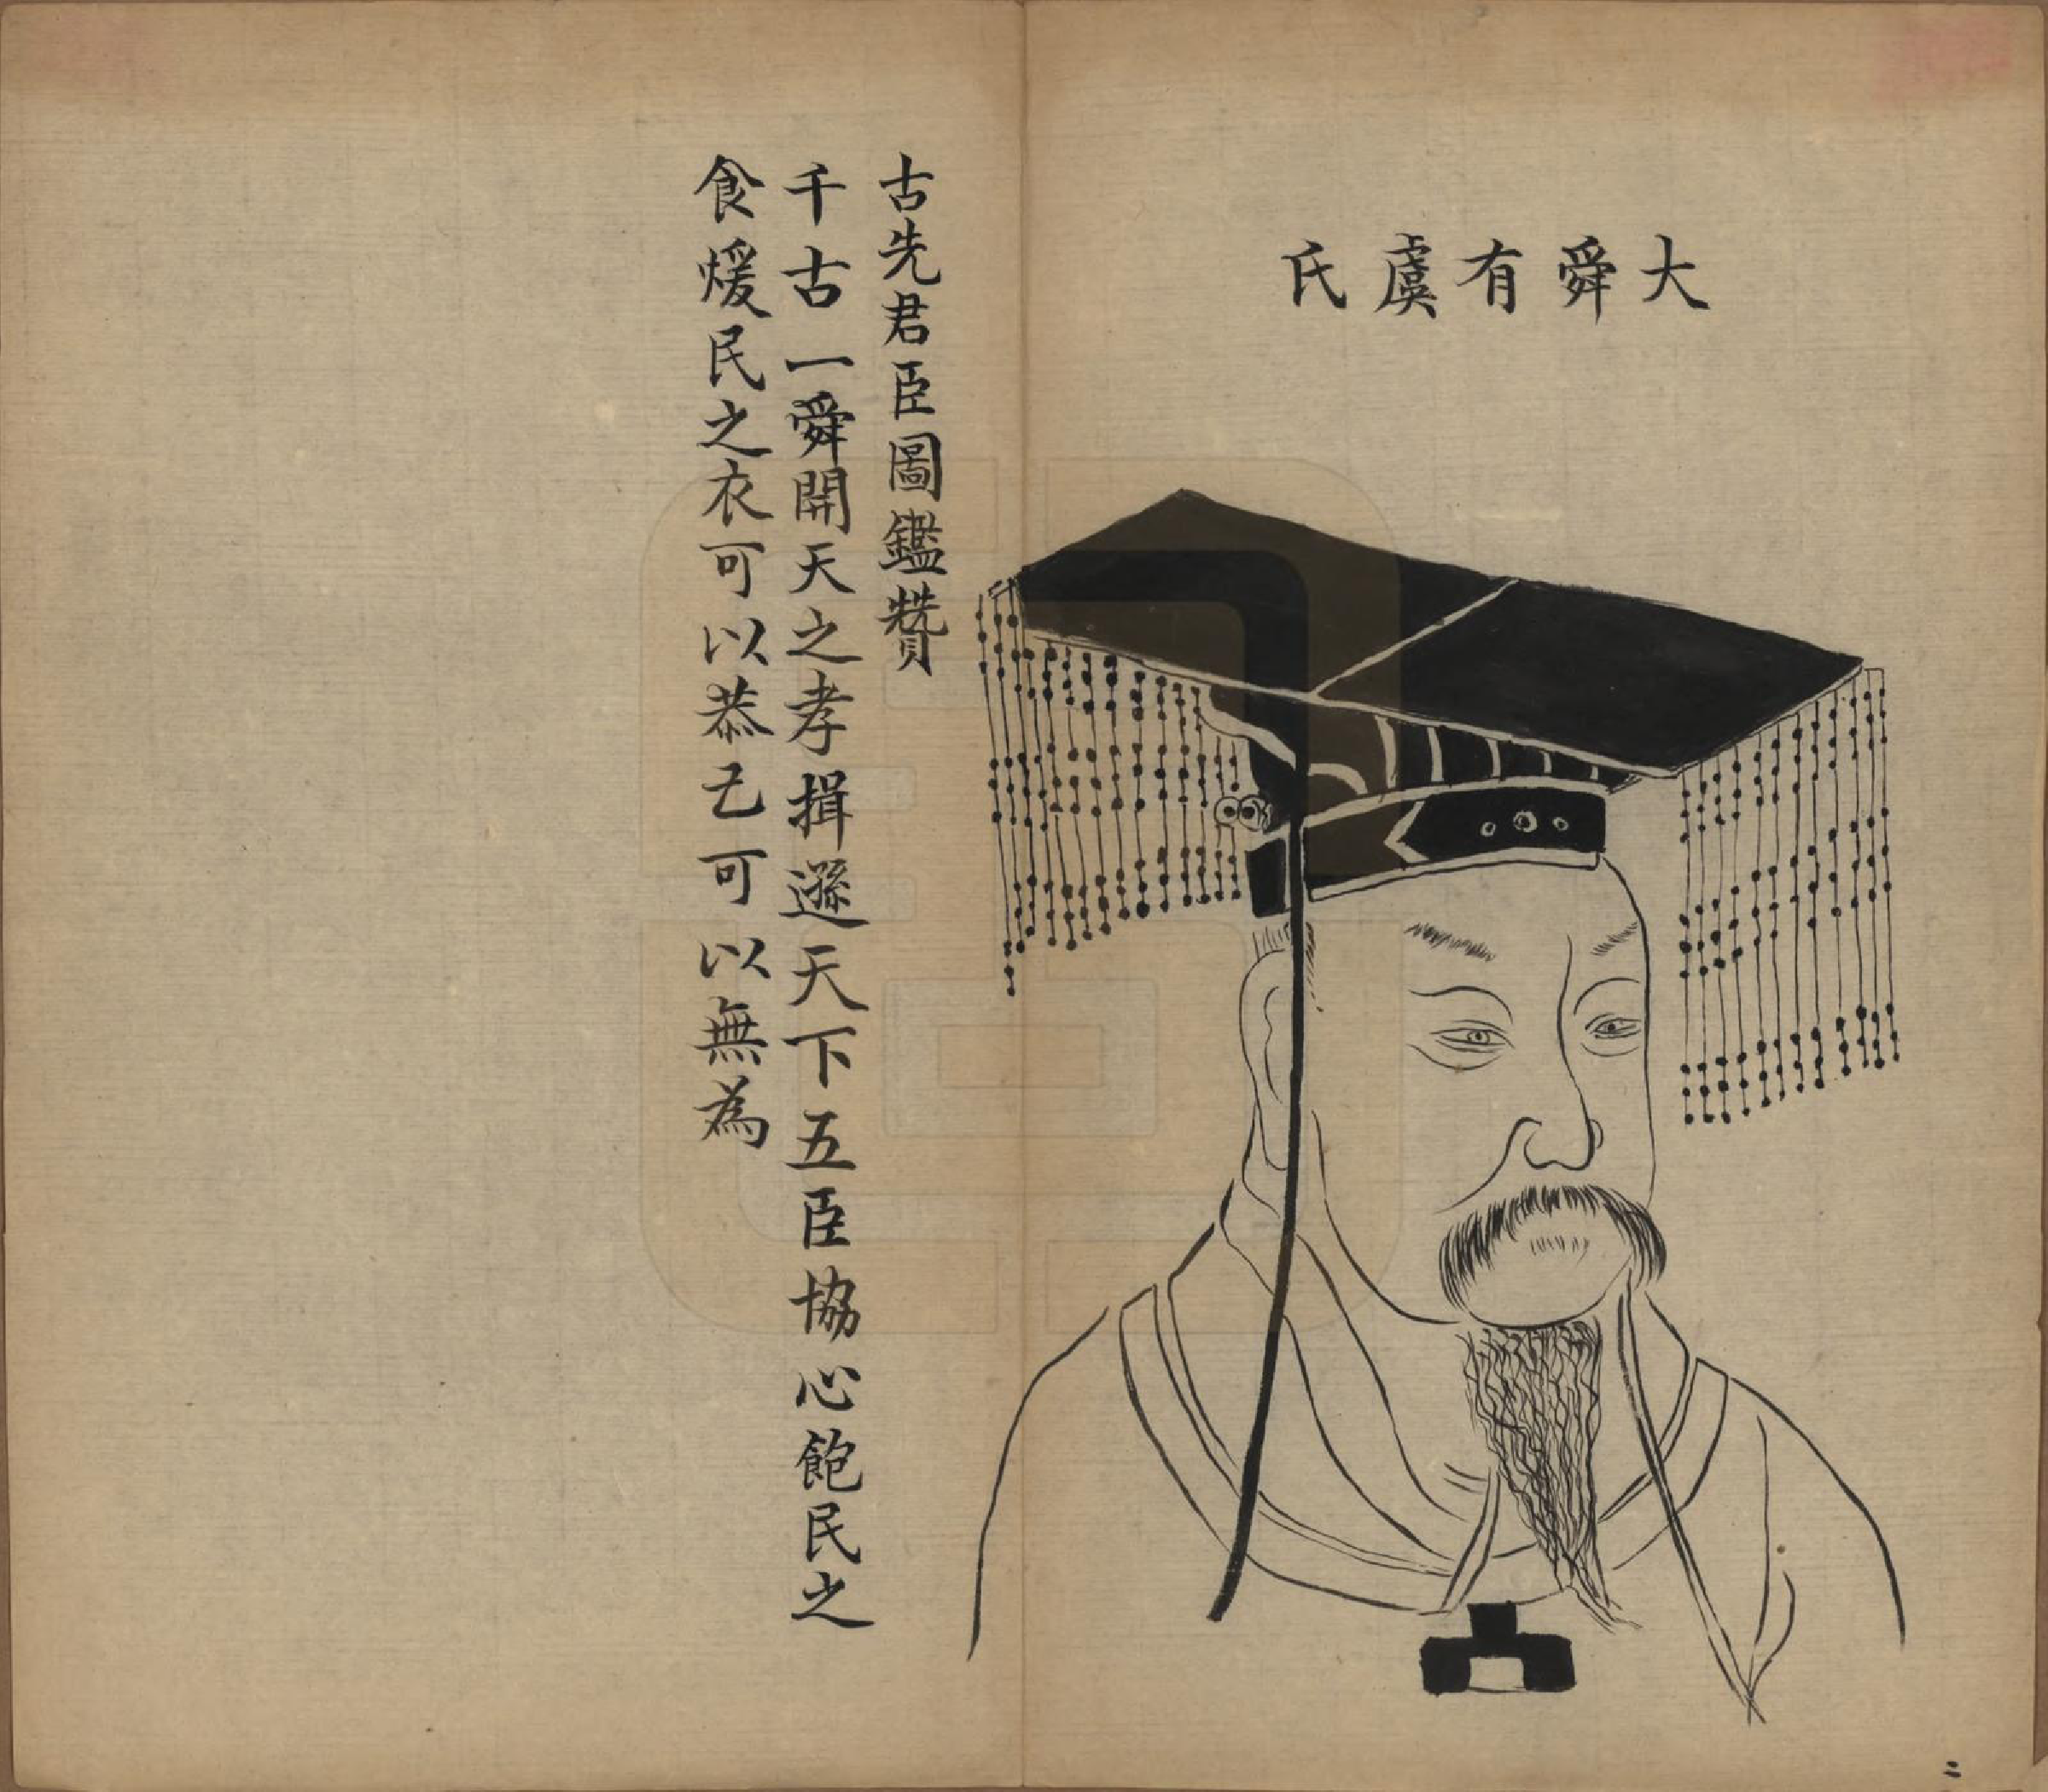 大舜有虞氏
古先君臣圖鑑贊
千古一舜開天之孝揖遜天下五臣協心飽民之
食煖民之衣可以恭己可以無為
二